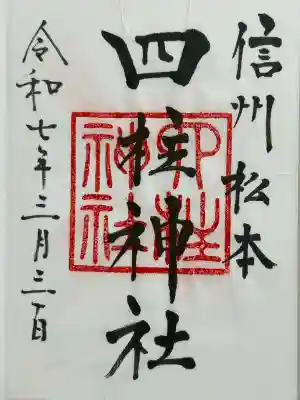 信州 松本
四柱神社
令和七年三月三日
四柱
神社